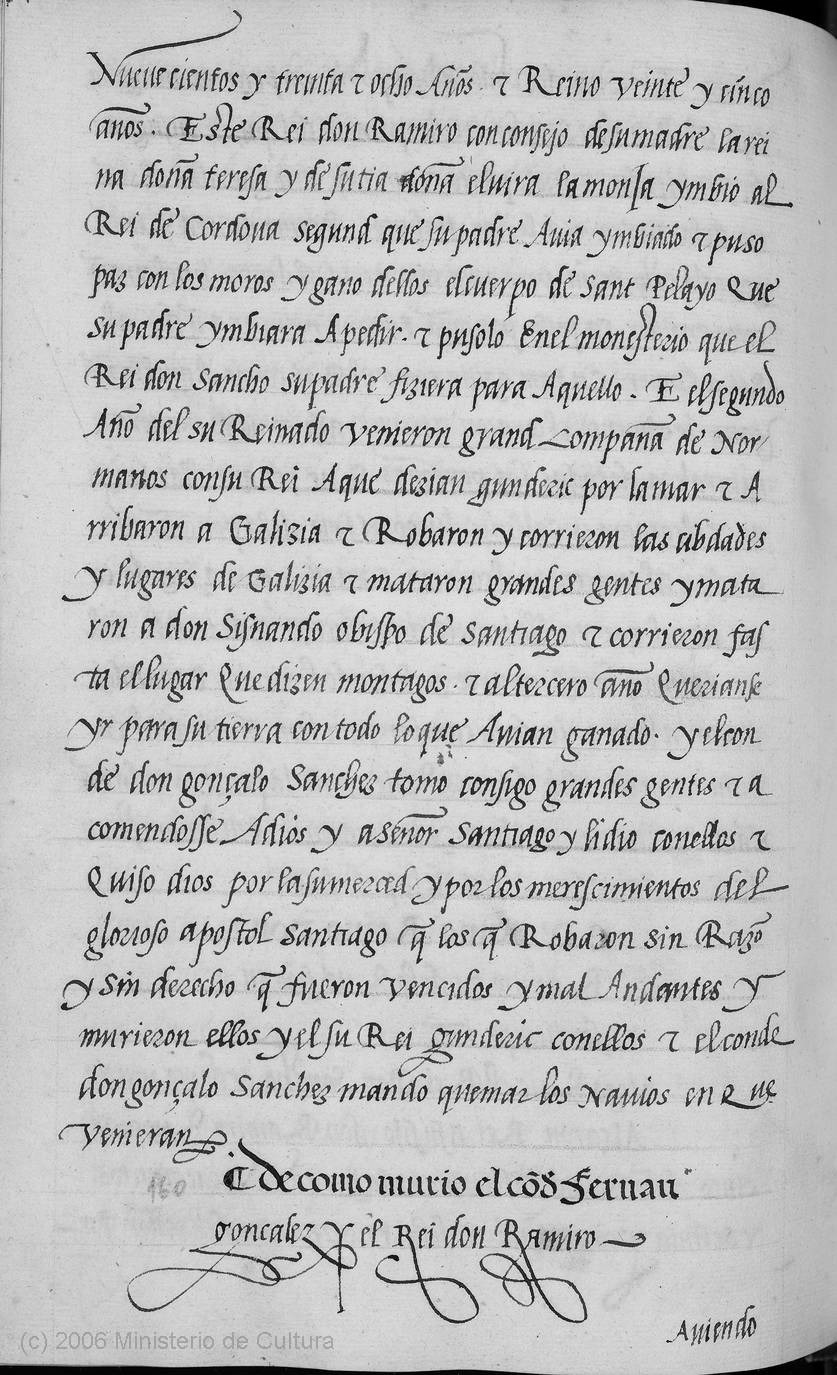 Nueue cientos y treinta τ ocho Años · τ Reino veinte y cinco
años . Este Rei don Ramiro con consejo de su madre la rei
na doña teresa y de su tia doña eluira la monja ymbio al
Rei de Cordoua segund que su padre Auia ymbiado τ puso
paz con los moros y gano dellos el cuerpo de Sant Pelayo Que
su padre ymbiara A pedir · τ pusolo Enel monesterio que el
Rei don Sancho su padre fiziera para Aquello . E el segundo
Año del su Reinado venieron grand Compaña de Nor
manos con su Rei A que dezian gunderic por la mar τ A
rribaron a Galizia τ Robaron y corrieron las cibdades
y lugares de Galizia τ mataron grandes gentes y mata
ron a don Sisnando obispo de Santiago τ corrieron fas
ta el lugar Que dizen montagos · τ al tercero año Querianse
yr para su tierra con todo lo que Auian ganado · y el con
de don gonçalo Sanchez tomo consigo grandes gentes τ a
comendosse A dios y a señor Santiago y lidio con ellos τ
Quiso dios por la su merced y por los merescimientos del
glorioso apostol Santiago q̃ los q̃ Robaron sin Razõ
y sin derecho q̃ fueron vencidos y mal Andantes y
murieron ellos y el su Rei gunderic con ellos τ el conde
don gonçalo Sanchez mando quemar los Nauios en Que
venieran
160
¶ de como murio el cõd Fernan
goncalez y el Rei don Ramiro
Auiendo
(c) 2006 Ministerio de Cultura